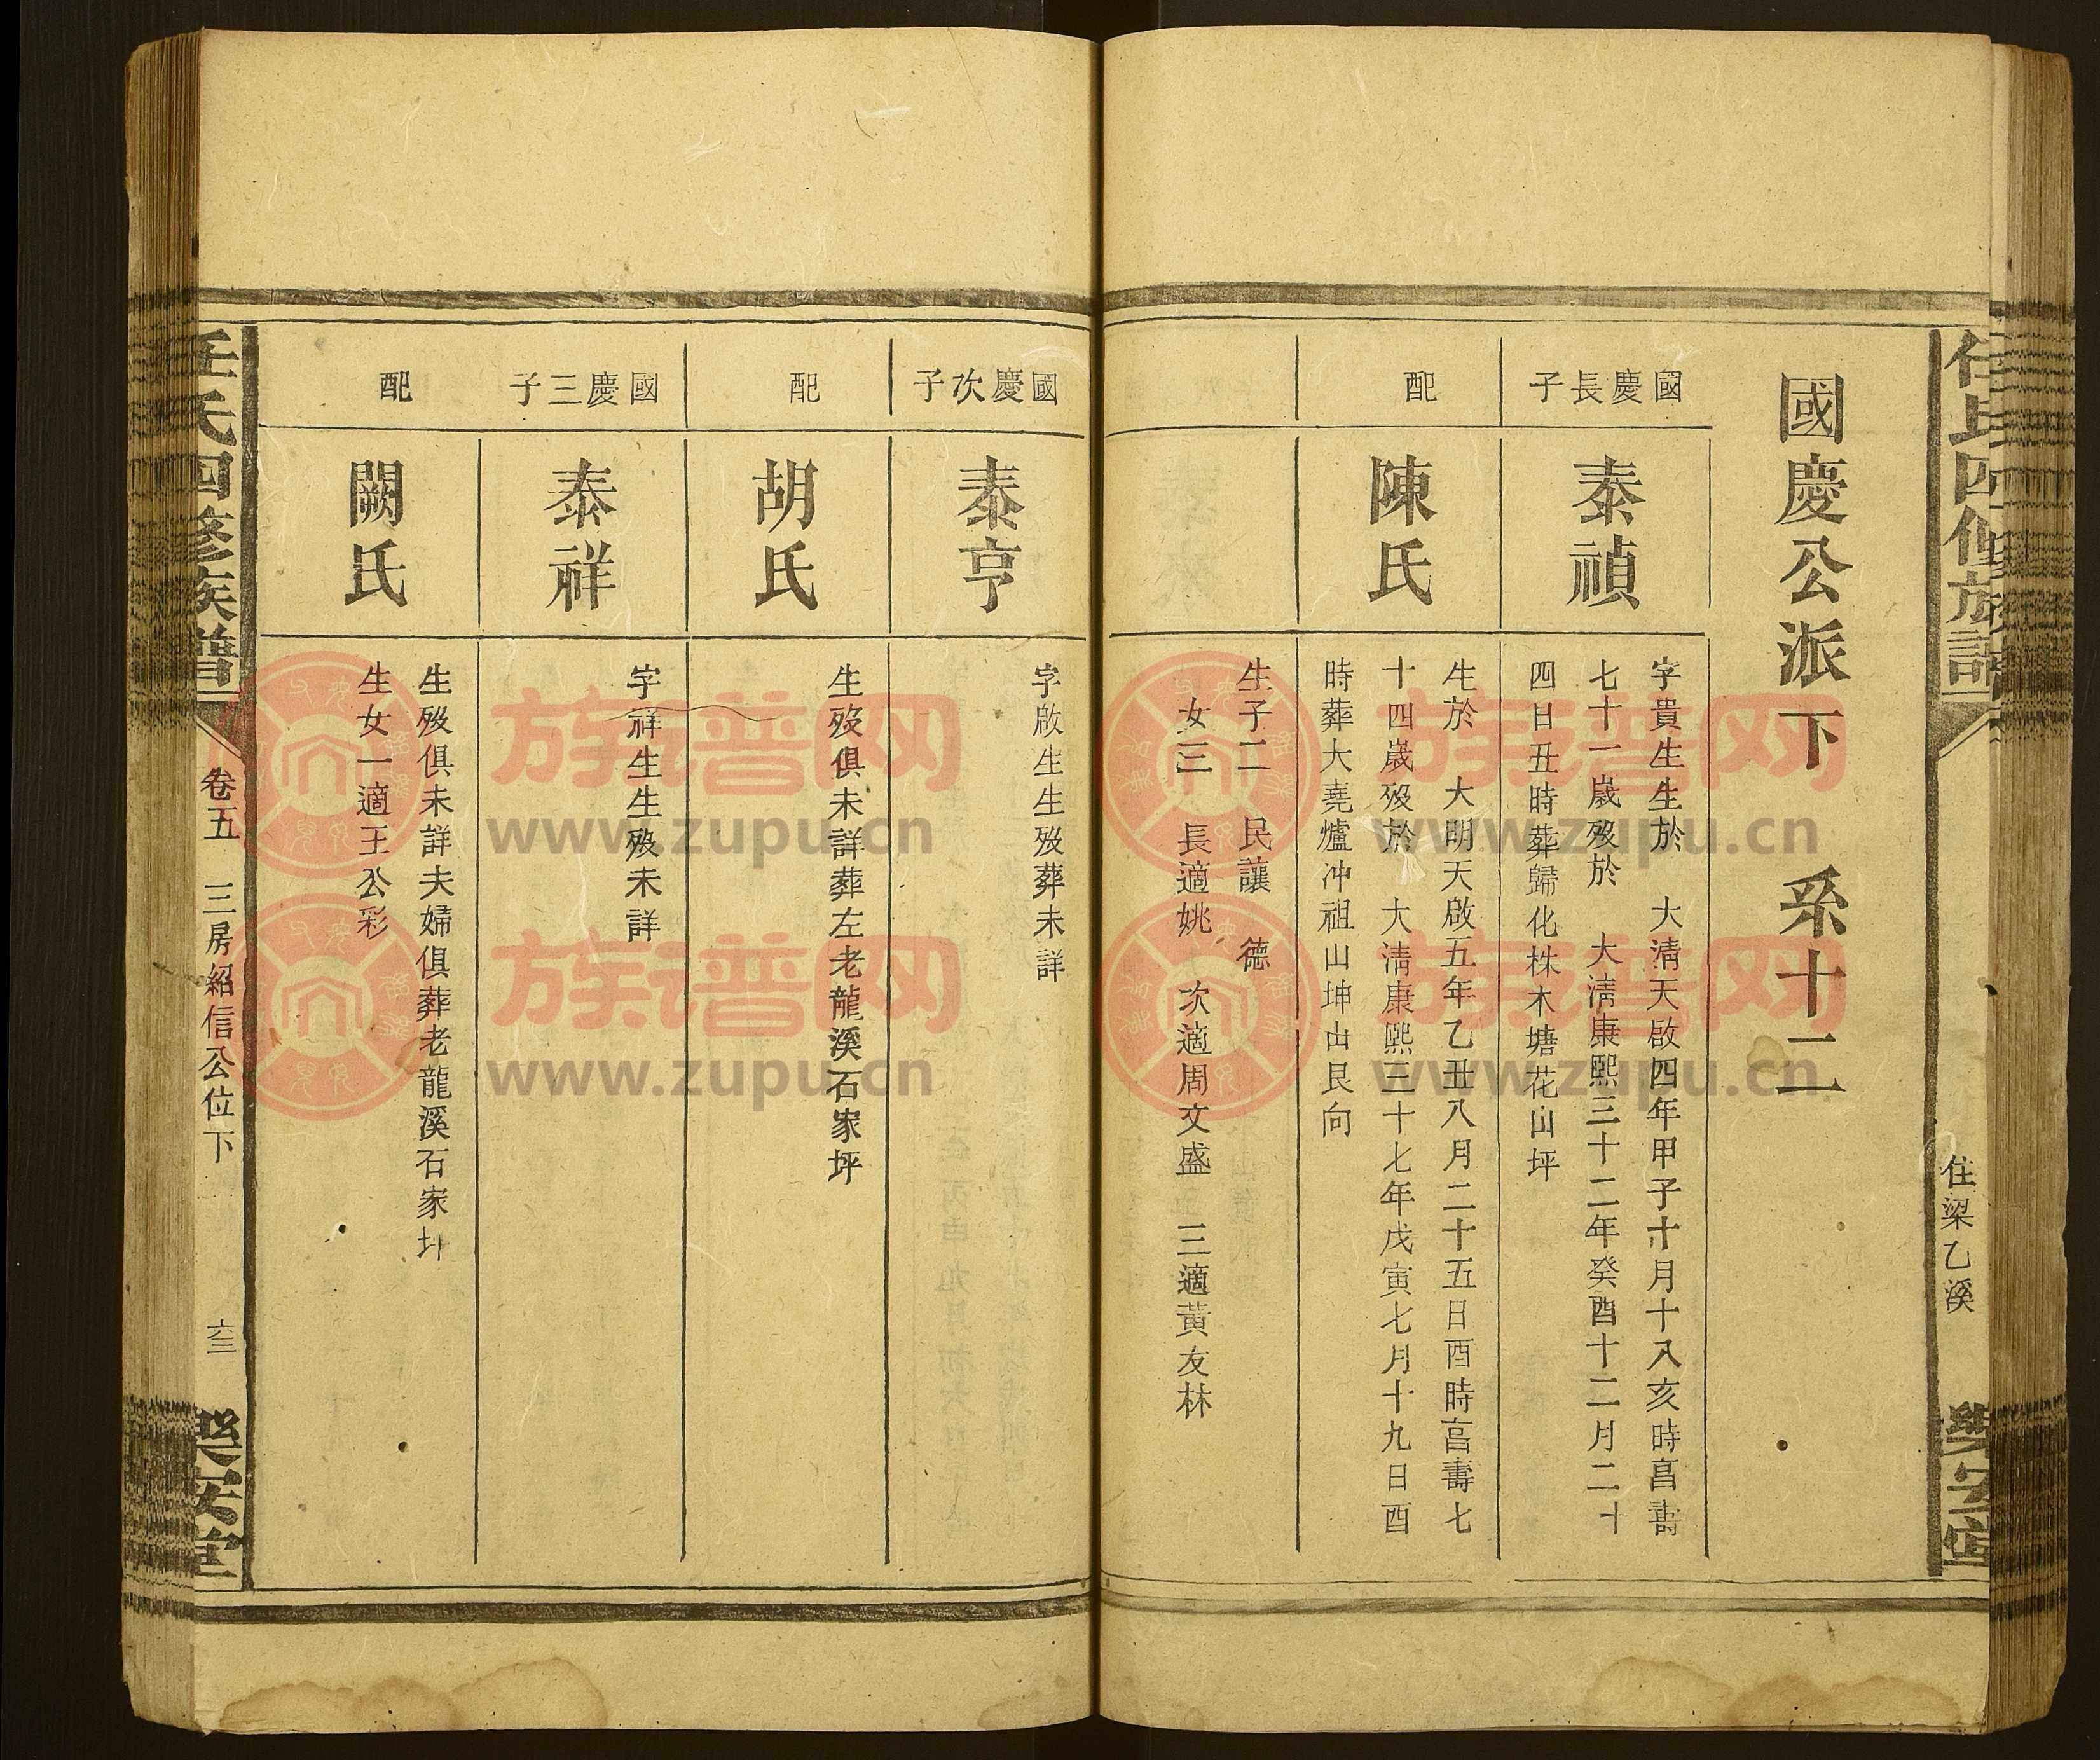 任氏四修族譜
住梁乙溪
樂安堂
國慶公派下 系十二
國慶長子
泰禎
字貴生生於 大清天啟四年甲子十月十八亥時亯壽
七十一歲殁於 大清康熙三十二年癸酉十二月二十
四日丑時葬歸化株木塘花山坪
配
陳氏
生於 大明天啟五年乙丑八月二十五日酉時亯壽七
十四歲殁於 大清康熙三十七年戊寅七月十九日酉
時葬大堯爐冲祖山坤山艮向
生子二 民讓 德
女三 長適姚 次適周文盛 三適黃友林
國慶次子
泰亨
字啟生生殁葬未詳
配
胡氏
生殁俱未詳葬左老龍溪石家坪
國慶三子
泰祥
字祥生生殁未詳
配
闕氏
生殁俱未詳夫婦俱葬老龍溪石家坪
生女一適王公彩
任氏四修族譜
卷五 三房紹信公位下 六三
樂安堂
族谱网
www.zupu.cn
族谱网
www.zupu.cn
族谱网
www.zupu.cn
族谱网
www.zupu.cn